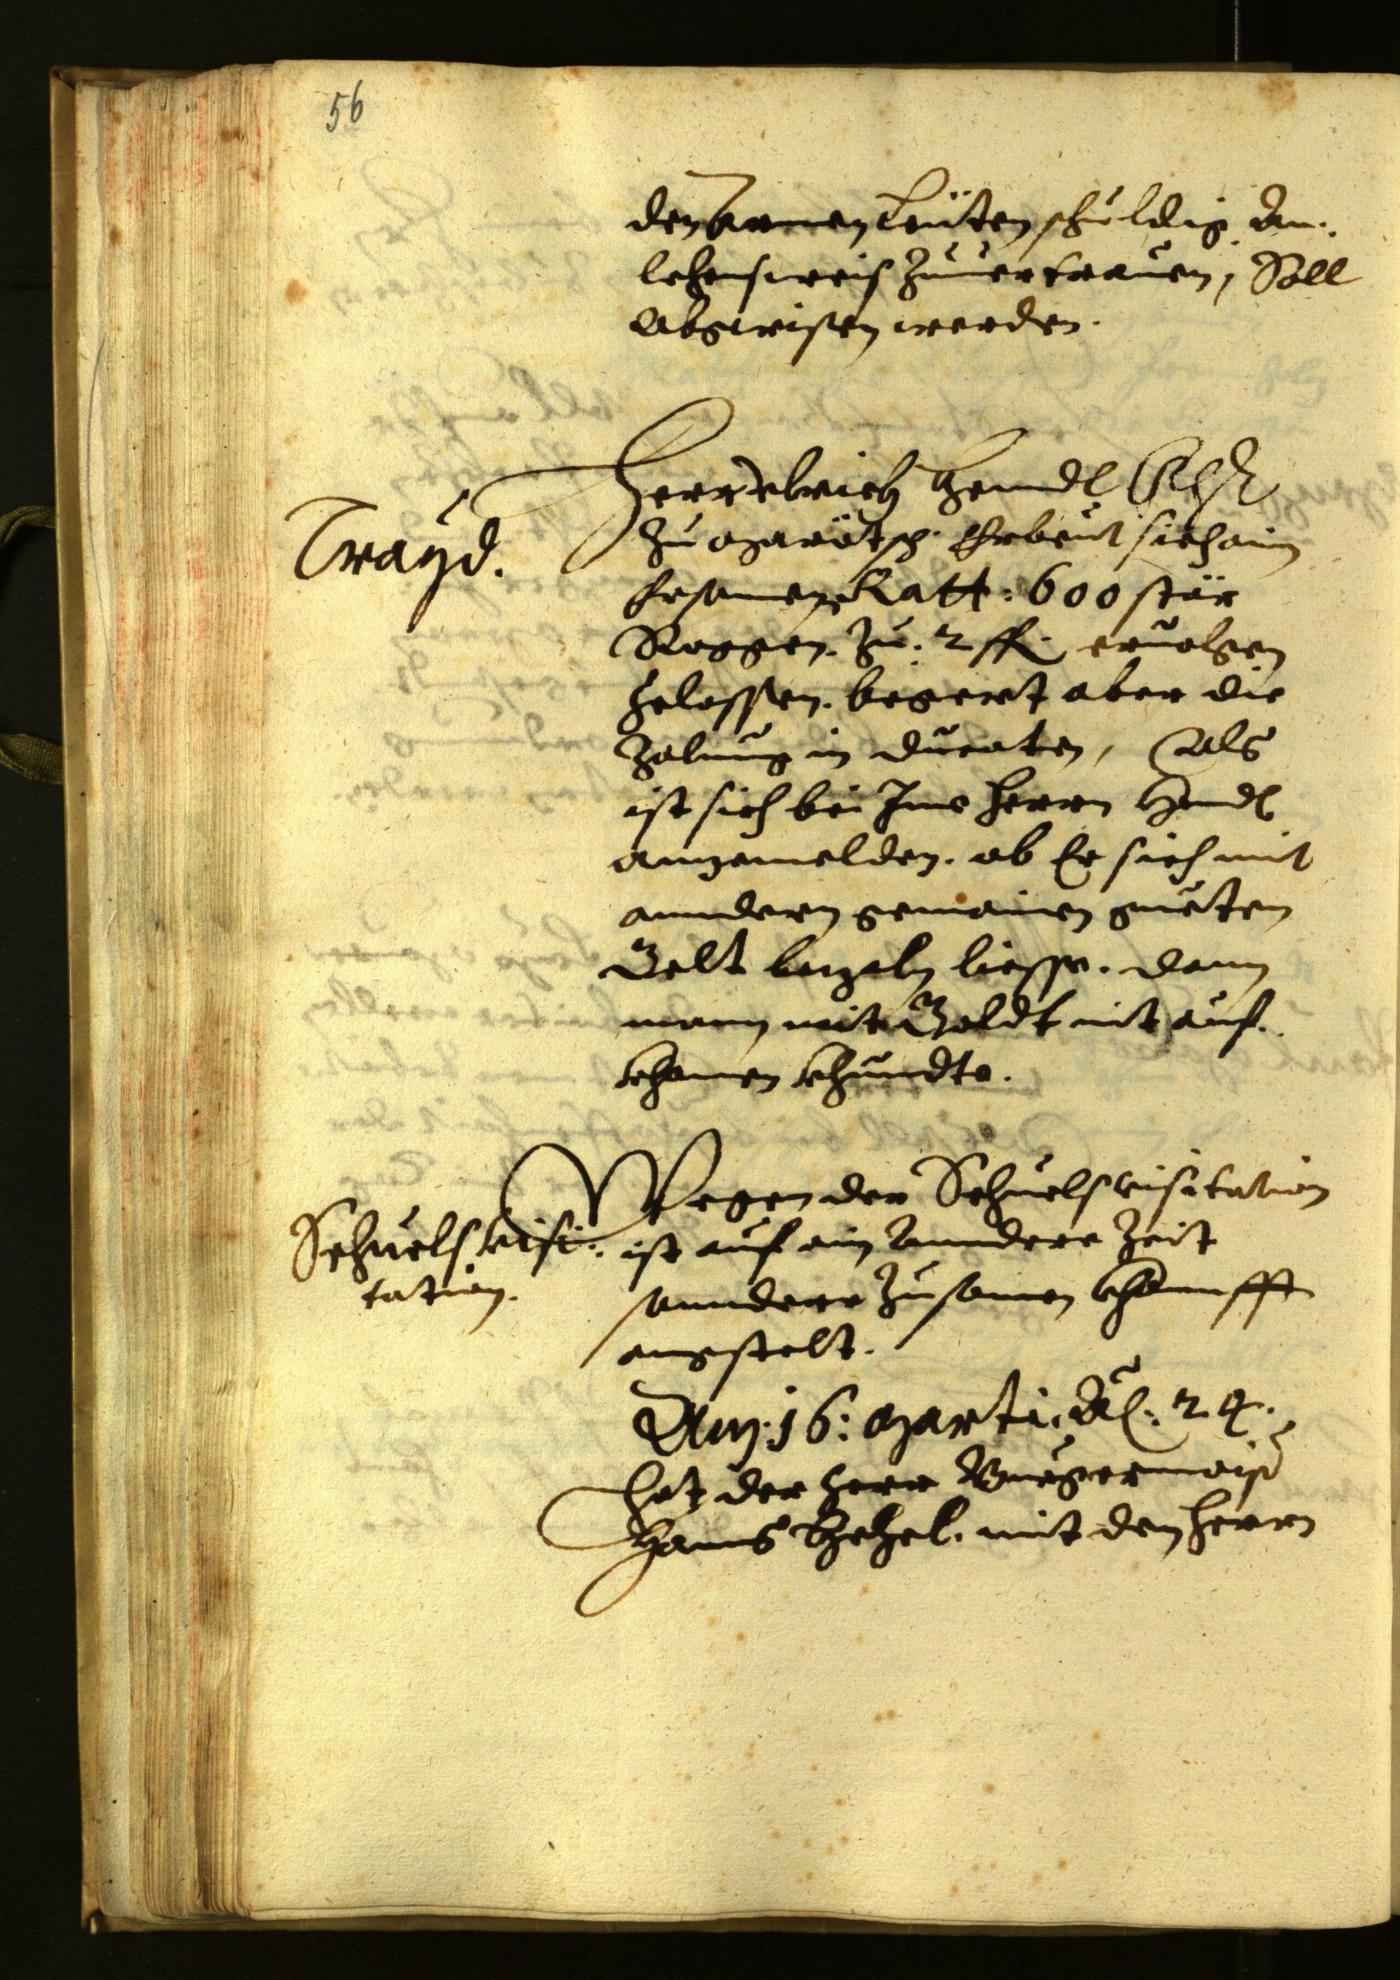 56
den Armen Leüten schuldig An-
lehensweis zuuertrauen, Soll
abgwisen werden.
Herr Ulrich Hendl
Trayd.
zu Marötsch. Erbeut sich aim
Ersamen Ratt: 600 stär
Roggen. zu: 2 fl. eruolgen
zelassen. begert aber die
zalung in ducaten, Als
ist sich bei Ime Herrn Hendl
anzemelden. ob Er sich mit
anndern gemainen gueten
Gelt bezaln liesse. dann
mann mit Goldt nit auf-
khomen khundte.
Wegen der Schuelsvisitation
Schuelsvisi:
tation.
ist auf ain anndere Zeit
sonndere Zusamen khonnfft
angstelt.
Am: 16: Marti. A[o]. 24.
hat der Herr Burgermaist[er]
Hanns mit den Herrn